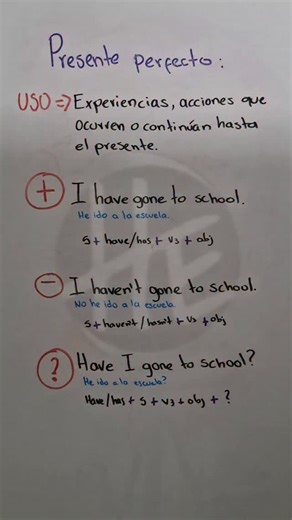 Presente perfecto:
USO => Experiencias, acciones que
ocurren o continúan hasta
el presente.
+ I have gone to school.
He ido a la escuela.
S + have/has + V3 + obj
- I haven't gone to school.
No he ido a la escuela.
S + haven't/hasn't + V3 + obj
? Have I gone to school?
He ido a la escuela?
Have/has + S + V3 + obj + ?